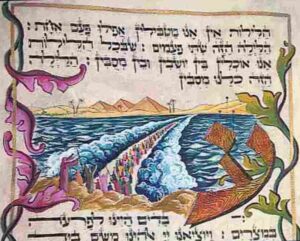 הלילות אין אנו מטבילין אפילו פעם אחת:
הלילה הזה שתי פעמים: שבכל הלילות
אנו אוכלין בין יושבין ובין מסבין: הלילה
הזה כלנו מסבין
עבדים היינו לפרעה
במצרים: ויוציאנו יי אלהינו משם ביד